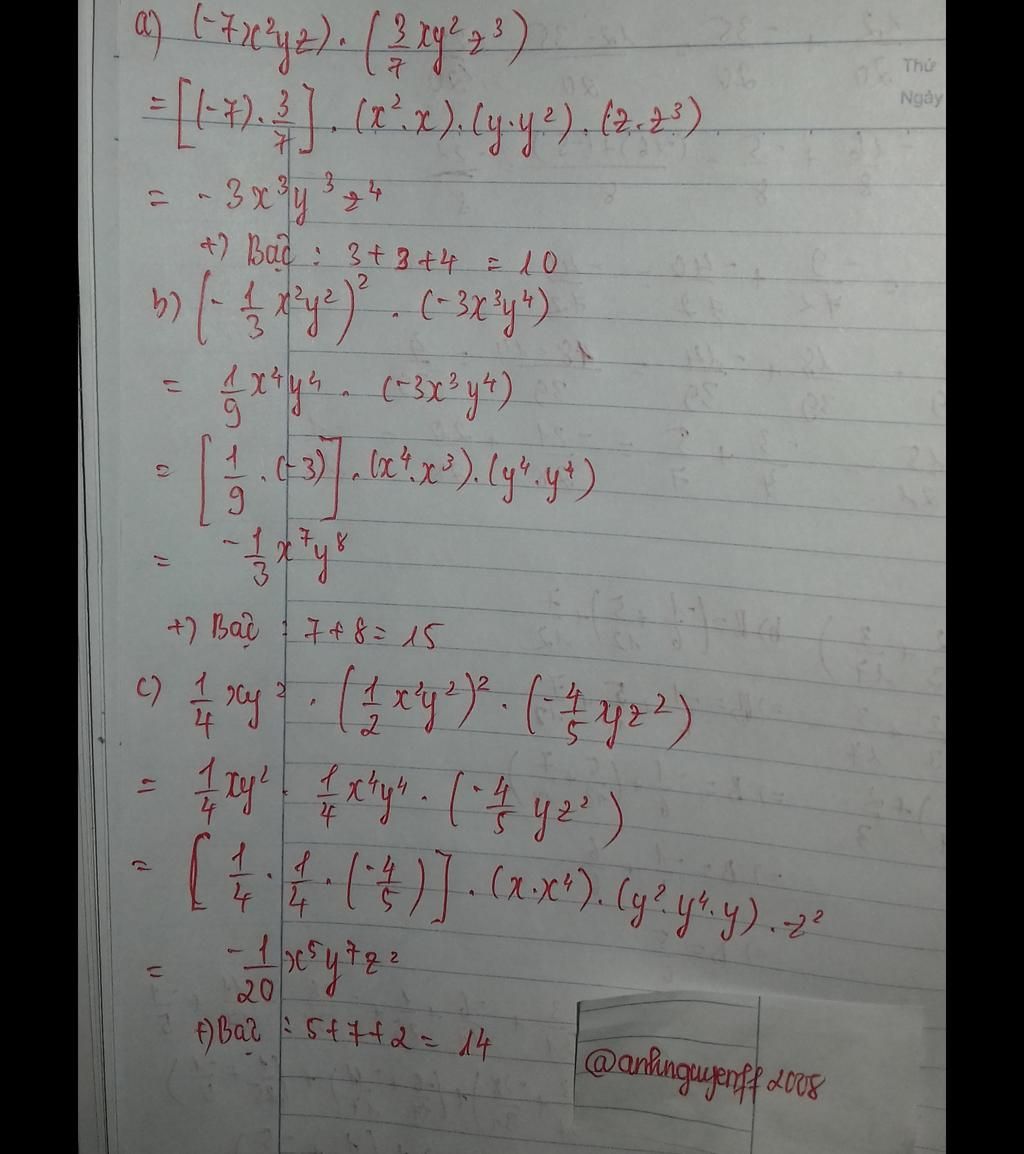 a) (-7x²yz) . (3/7 xy²z³)
Thứ
Ngày
= [(-7) . 3/7] . (x² . x) . (y . y²) . (z . z³)
= - 3x³y³z⁴
+) Bậc : 3 + 3 + 4 = 10
b) (- 1/3 x²y²)² . (-3x³y⁴)
= 1/9 x⁴y⁴ . (-3x³y⁴)
= [1/9 . (-3)] . (x⁴ . x³) . (y⁴ . y⁴)
= -1/3 x⁷y⁸
+) Bậc : 7 + 8 = 15
c) 1/4 xy² . (1/2 x²y²)² . (-4/5 xyz²)
= 1/4 xy² . 1/4 x⁴y⁴ . (-4/5 yz²)
= [1/4 . 1/4 . (-4/5)] . (x . x⁴) . (y² . y⁴ . y) . z²
= -1/20 x⁵y⁷z²
+) Bậc : 5 + 7 + 2 = 14
@anhnguyenff2008